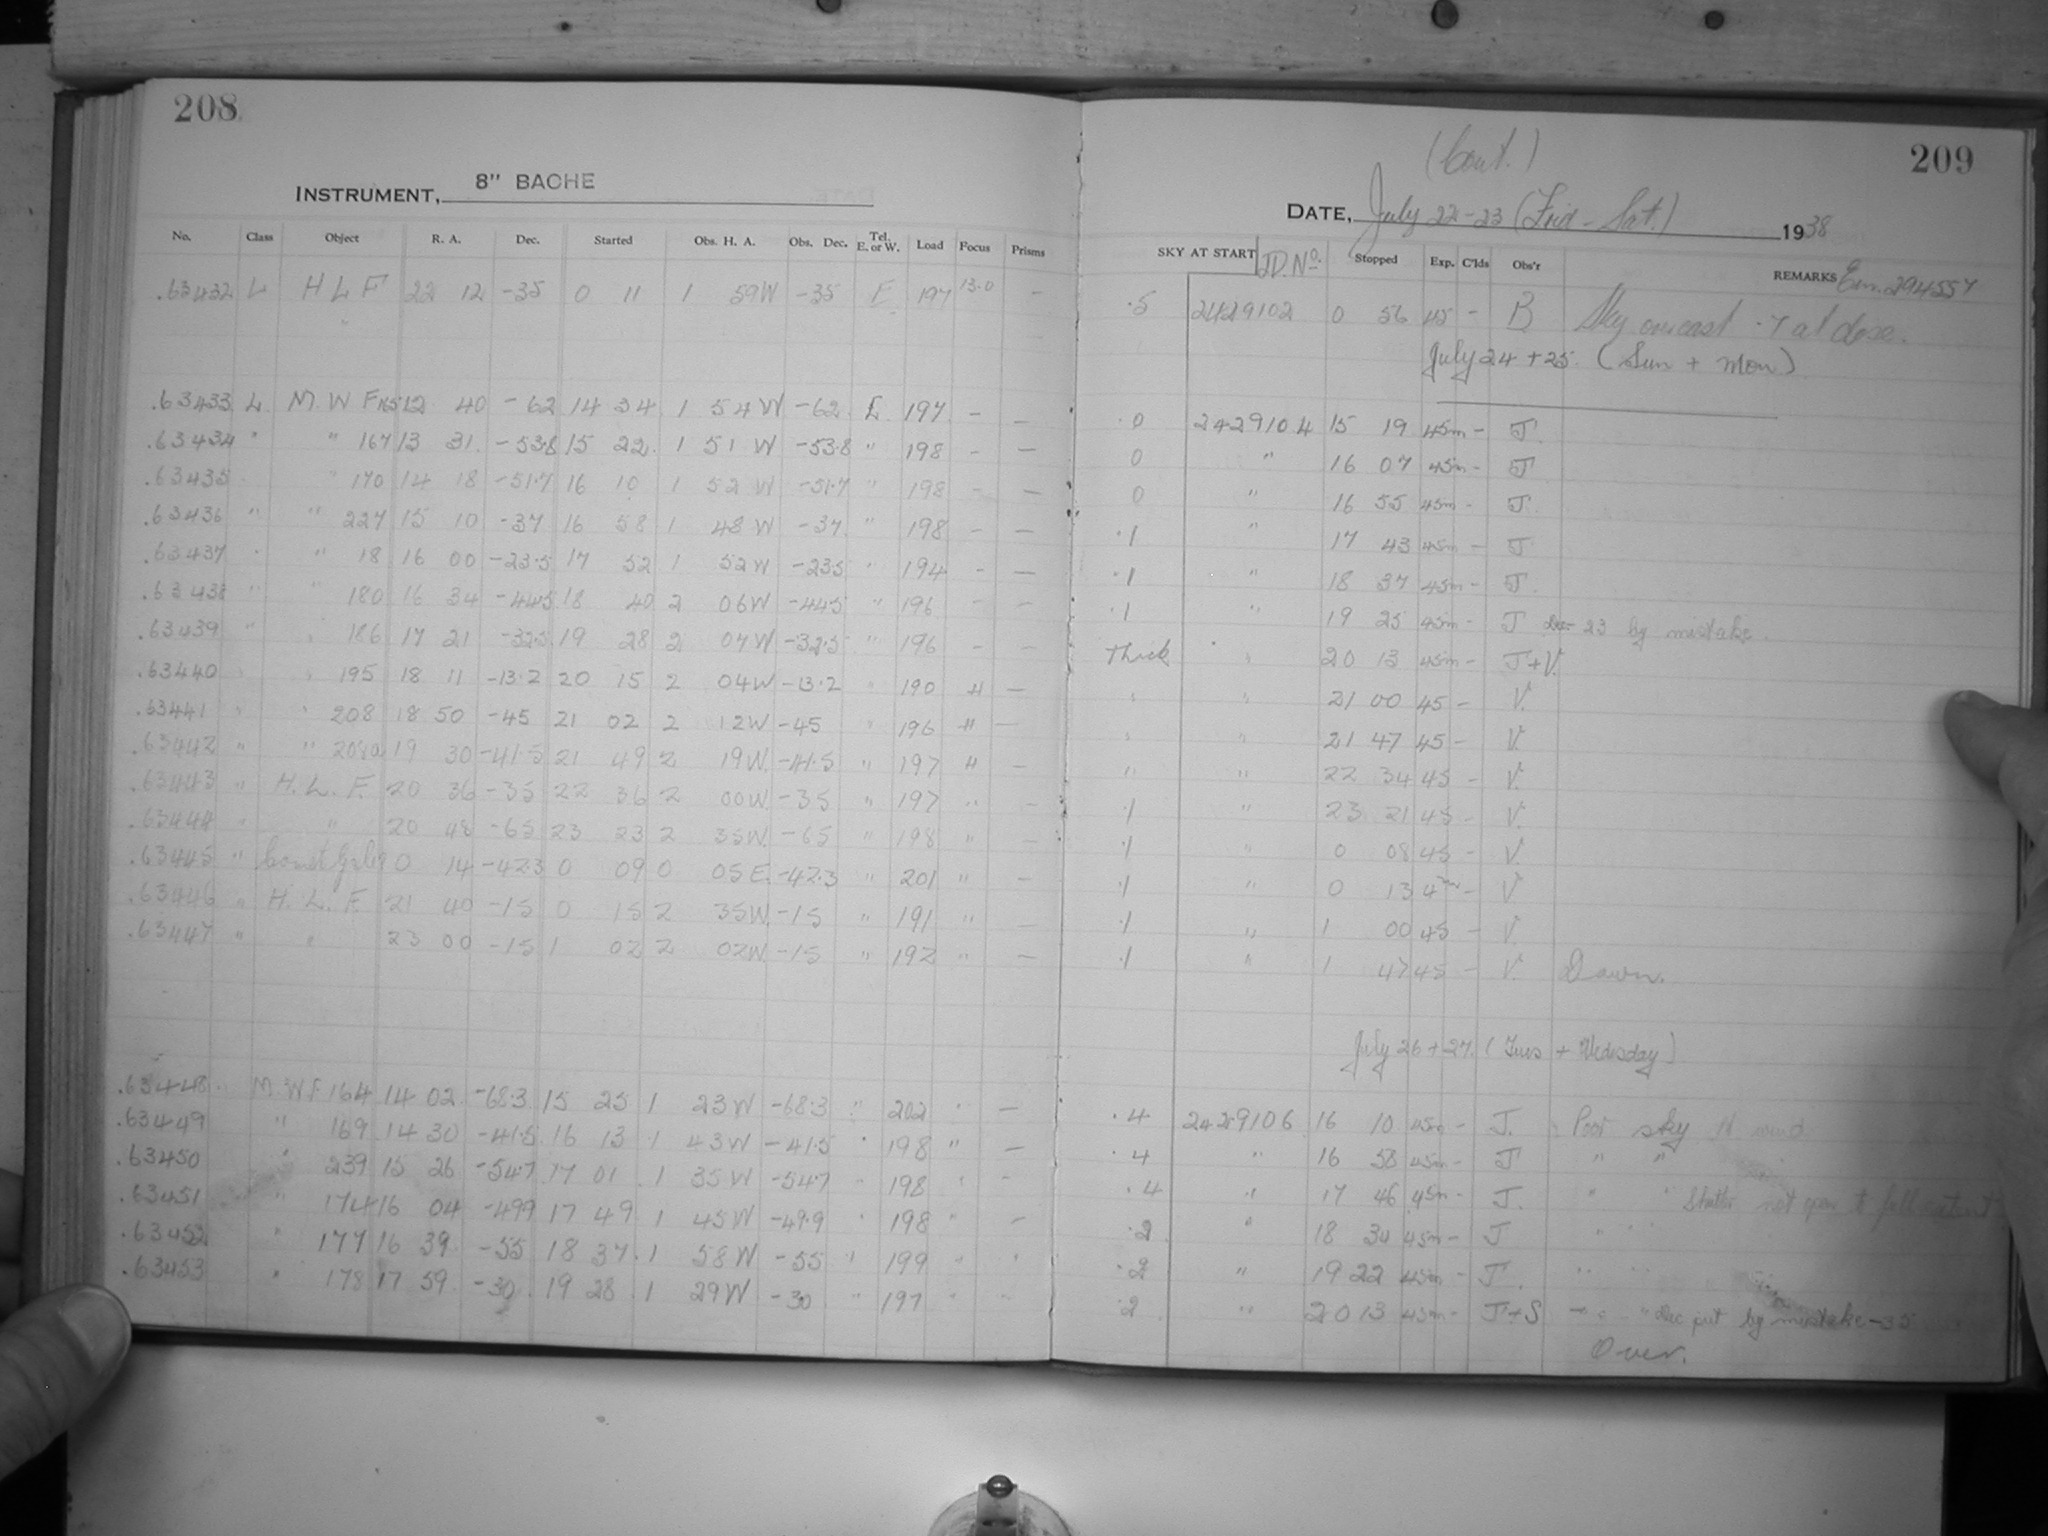 208
INSTRUMENT, 8" BACHE
No. Class Object R. A. Dec. Started Obs. H. A. Obs. Dec. Tel. E. or W. Load Focus Prisms
.63432 L H L F 22 12 -35 0 11 1 59W -35 E 197 13.0 -
.63433 L M W F 165 12 40 -62 14 34 1 54W -62 E 197 - -
.63434 " " 167 13 31 -53.8 15 22 1 51 W -53.8 " 198 - -
.63435 " 170 14 18 -51.7 16 10 1 52 W -51.7 " 198 - -
.63436 " " 227 15 10 -37 16 58 1 48 W -37 " 198 - -
.63437 " " 18 16 00 -23.5 17 52 1 52W -23.5 " 194 - -
.63438 " " 180 16 34 -44.5 18 40 2 06W -44.5 " 196 - -
.63439 " " 186 17 21 -32.5 19 28 2 07W -32.5 " 196 - -
.63440 " " 195 18 11 -13.2 20 15 2 04W -13.2 " 190 " -
.63441 " " 208 18 50 -45 21 02 2 12W -45 " 196 " -
.63442 " " 208a 19 30 -41.5 21 49 2 19W -41.5 " 197 " -
.63443 " H. L. F. 20 36 -35 22 36 2 00W -35 " 197 " -
.63444 " " 20 48 -65 23 23 2 35W -65 " 198 " -
.63445 " Comet 0 14 -42.3 0 09 0 05E -42.3 " 201 " -
.63446 " H. L. F. 21 40 -15 0 15 2 35W -15 " 191 " -
.63447 " " 23 00 -15 1 02 2 02W -15 " 192 " -
.63448 M. W F. 164 14 02 -68.3 15 25 1 23W -68.3 " 202 " -
.63449 " 169 14 30 -41.5 16 13 1 43W -41.5 " 198 " -
.63450 " 239 15 26 -54.7 17 01 1 35W -54.7 " 198 " -
.63451 " 174 16 04 -49.9 17 49 1 45W -49.9 " 198 " -
.63452 " 177 16 39 -55 18 37 1 58W -55 " 199 " "
.63453 " 178 17 59 -30 19 28 1 29W -30 " 197 " "
209
(Cont.)
DATE, July 22-23 (Fri - Sat.) 1938
SKY AT START JD. No. Stopped Exp. C'lds Obs'r REMARKS
.5 2429102 0 56 45 - B Sky overcast .7 at close.
July 24 + 25. (Sun + Mon)
.0 2429104 15 19 45m - J.
0 " 16 07 45m - J
0 " 16 55 45m - J.
.1 " 17 43 45m - J
.1 " 18 37 45m - J.
.1 " 19 25 45m - J Dec 23 by mistake.
Thick " 20 13 45m - J+V.
" " 21 00 45 - V.
" " 21 47 45 - V.
" " 22 34 45 - V.
.1 " 23 21 45 - V.
.1 " 0 08 45 - V
.1 " 0 13 4m - V
.1 " 1 00 45 - V.
.1 " 1 47 45 - V. Dawn.
July 26 + 27. (Tues + Wedesday)
.4 2429106 16 10 45m - J. Poor sky wind
.4 " 16 58 45m - J " "
.4 " 17 46 45m - J. " " Shutter not open to full extent
.2 " 18 34 45m - J " "
.2 " 19 22 45m - J. " "
.2 " 20 13 45m - J+S " " Dec put by mistake -35
Over.